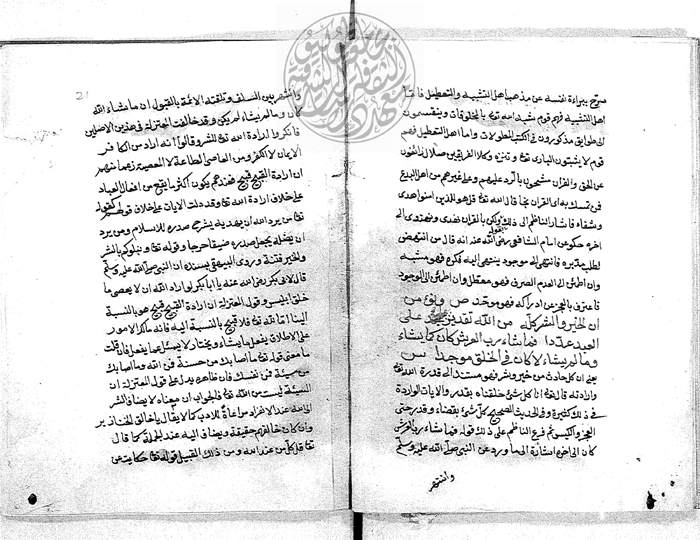 صرح ببراءة نفسه عن مذهب اهل التشبيه والتعطيل فاما
اهل التشبيه فهم قوم شبهوا الله تع بالمخلوقات وينقسمون
الى طوايق مذكورون في الكتب المطولات واما اهل التعطيل فهم
قوم لا يثبتون البارى تع وتنزه وكلا الفريقين ضلال زائغون
عن الحق والقران مشحون بالرد عليهم وعلى غيرهم من اهل البدع
فمن تمسك به اى القران نجا قال الله تع قل هو للذين امنوا هدى
وشفاء فاشار الناظم الى ذلك بقوله وكلى بالقران نهدى ونهتدى الى
اخره حكى عن امام الشافعى رضى الله عنه انه قال من انتهض
لطلب مدبره فانتهى الى موجود ينتهى اليه فكره فهو مشبه
وان اطمئن الى العدم الصرف فهو معطل وان اطمئن الى الموجود
فاعترف بالعجز عن ادراكه فهو موحد ص ونؤمن
ان الخير والشر كله من الله تقدير على
العبد عددا فما شاء رب العرش كان كما يشاء
وما لم يشاء لا كان في الخلق موجدا س
يعنى ان كل حادث من خير وشر فهو مستند الى قدرة الله تع
وارادته قال الله تع انا كل شئ خلقناه بقدر والايات الواردة
في ذلك كثيرة وفي الحديث الصحيح كل شئ بقضاء وقدر حتى
العجز والكيس ثم فرع الناظم على ذلك قوله فما شاء رب العرش
كان الى اخره اشارة الى ما ورد عن النبى صلى الله عليه وسلم
وانتهر
21
وانتهر بين السلف وتلقته الائمة بالقبول ان ما شاء الله
كان وما لم يشاء لم يكن وقد خالفت المعتزلة في هذين الاصلين
فانكروا ارادة الله تع للشر وقالوا انه اراد من الكافر
الايمان لا الكفر ومن العاصى الطاعة لا المعصية زعما منهم
ان ارادة القبيح قبيح فعندهم يكون اكثر ما يقع من افعال العباد
على خلاف ارادة الله تع وقد دلت الايات على خلاف قولهم كقوله
تع من يرد الله ان يهديه يشرح صدره للاسلام ومن يرد
ان يضله يجعل صدره ضيقا حرجا وقوله تع ونبلوكم بالشر
والخير فتنة وروى البيهقى بسنده ان النبى صلى الله عليه وسلم
قال لابى بكر رضى الله عنه يا ابا بكر لو اراد الله ان لا يعصى ما
خلق ابليس وقول المعتزلة ان ارادة القبيح قبيح هو بالنسبة
الينا اما الله تع فلا قبيح بالنسبة اليه فانه مالك الامور
على الاطلاق يفعل ما يشاء ويختار لا يسئل عما يفعل فان قلت
ما معنى قوله تع ما اصابك من حسنة فمن الله وما اصابك
من سيئة فمن نفسك فان ظاهره يدل على قول المعتزلة ان
السيئة ليست من الله تع فالجواب ان معناه لا يضاف الشر
الى الله عند الانفراد مراعاة للادب كما لا يقال يا خالق الخنازير
وان كان خالقهم حقيقة ويضاف اليه عند الجملة كما قال
تع قل كل من عند الله ومن ذلك القبيل قوله تع حكاية عن